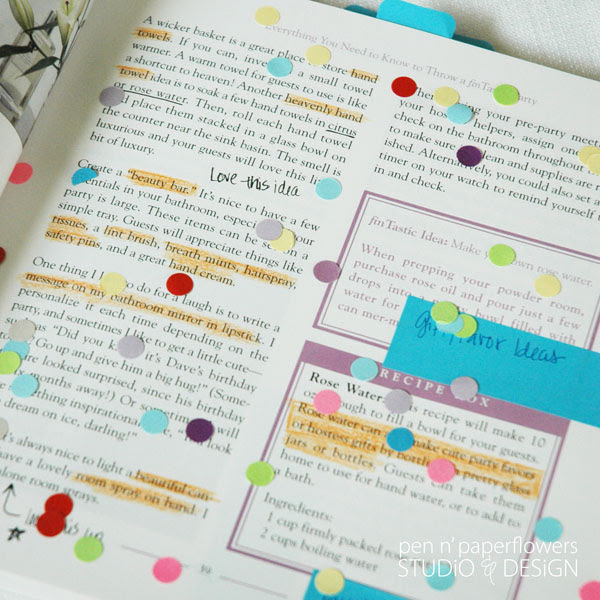 A wicker basket is a great place store hand
towels. If you can, inve a small towel
warmer. A warm towel for guests to use is like
a shortcut to heaven! Another heavenly hand
towel idea is to soak a few hand towels in citrus
or rose water. Then, roll each hand towel
I place them stacked in a glass bowl on
the counter near the sink basin. The smell is
luxurious and your guests will love this li
bit of luxury.
Love this idea
Create a "beauty bar." It's nice to have a few
entials in your bathroom, espec your
party is large. These items can be s on a
simple tray. Guests will appreciate things like
tissues, a lint brush, breath mints, hairspray,
safety pins, and a great hand cream.
One thing I l to do for a laugh is to write a
message on my bathroom mirror in lipstick. I
personalize it each time depending on the
party, and sometimes I like to get a little cute—
as "Did you k it's Dave's birthday
Go up and give him a big hug!" (Some-
re looked surprised, since his birthday
onths away!) Or so ting will
thing inspirational e, "You look
a dream on ice, darling!"
t's always nice to light a beautiful can-
have a lovely room spray on hand. I
alone room sprays.
this
Everything You Need to Know to Throw a finTastic Party
When ing your pre-party mee
your h helpers, assign one
check on the bathroom throughout
to make sure lean and supplies are r
ished. Alternatively, you could also set a
timer on your watch to remind yourself t
in and check.
finTastic Idea: Make your own rose water
When prepping your powder room,
purchase rose oil and pour just a few
drops into a bowl filled with
water for
can mer-m
Gift/Favor Ideas
RECIPE BOX
Rose Water: This recipe will make 10
ough to fill a bowl for your guests.
Rose water can make cute party favors
or hostess gifts by bottl pretty glass
jars or bottles. Guests can take them
home to use for hand water, or to add to
bath.
Ingredients:
1 cup firmly packed ro
2 cups boiling water
pen n' paperflowers
STUDiO & DESiGN